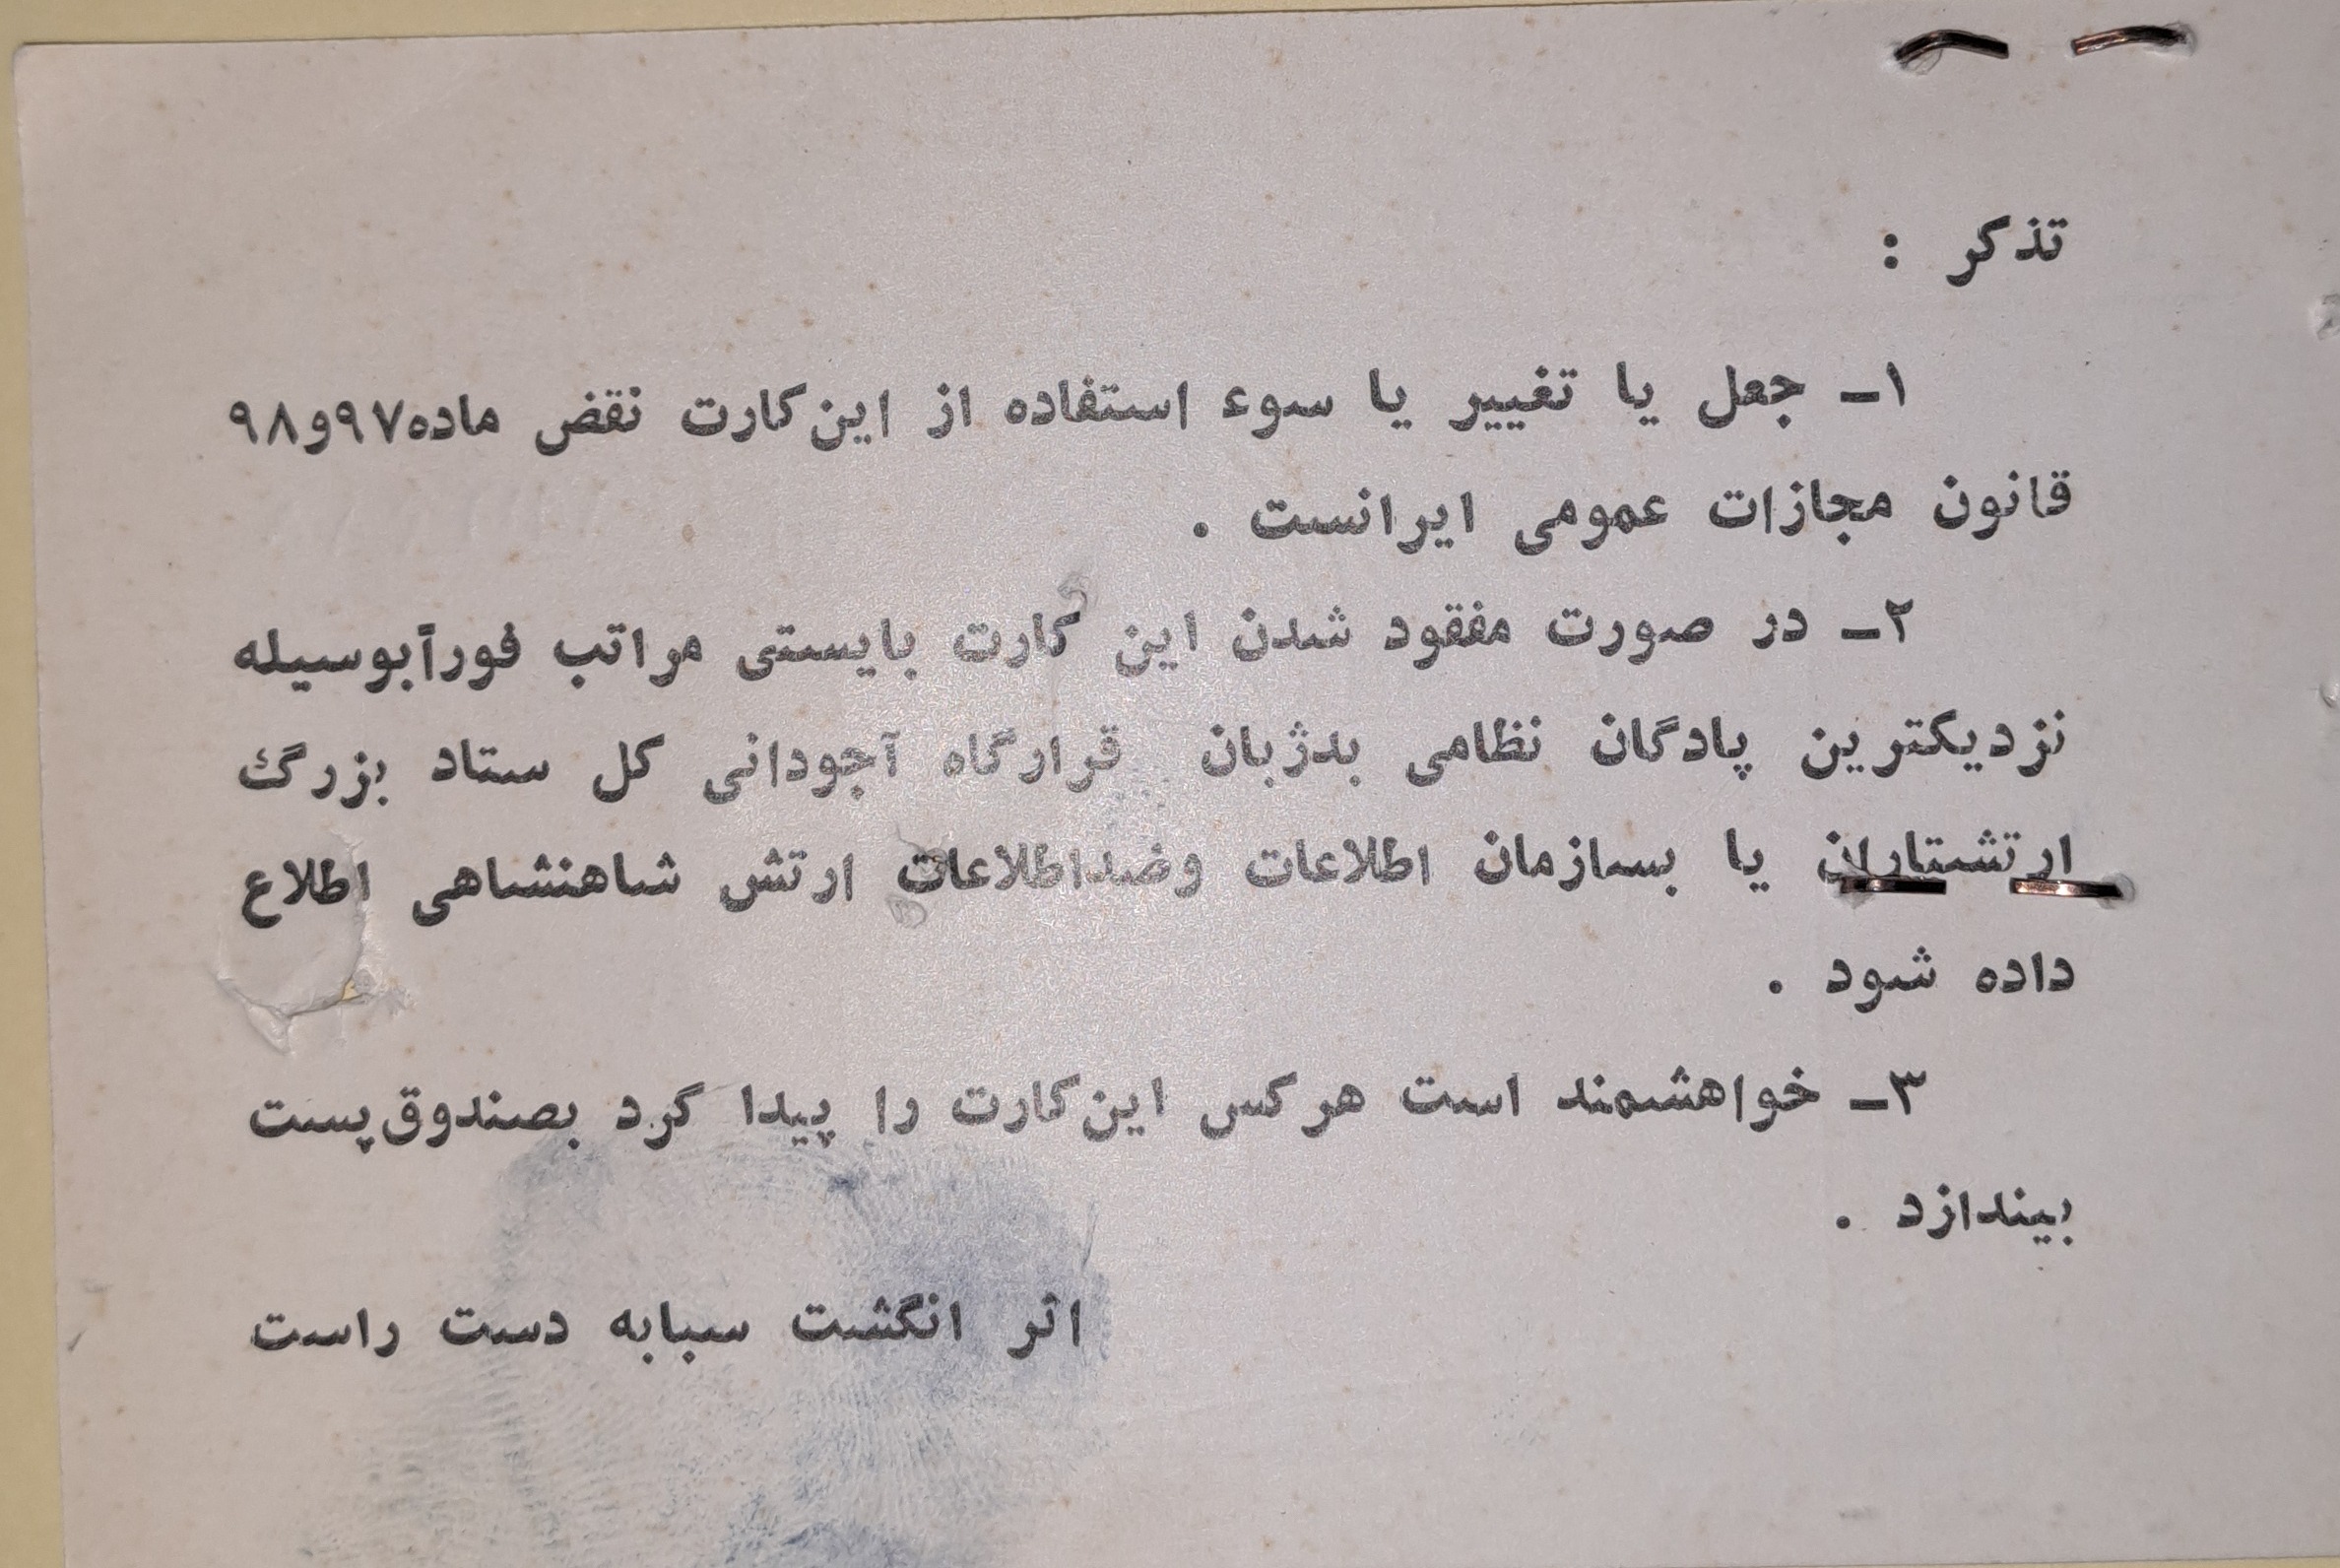 تذکر :
۱ـ جعل یا تغییر یا سوء استفاده از این‌کارت نقض ماده۹۷و۹۸
قانون مجازات عمومی ایرانست .
۲ـ در صورت مفقود شدن این کارت بایستی مراتب فوراًبوسیله
نزدیکترین پادگان نظامی بدژبان قرارگاه آجودانی کل ستاد بزرگ
ارتشتاران یا بسازمان اطلاعات وضداطلاعات ارتش شاهنشاهی اطلاع
داده شود .
۳ـ خواهشمند است هرکس این‌کارت را پیدا کرد بصندوق‌پست
بیندازد .
اثر انگشت سبابه دست راست